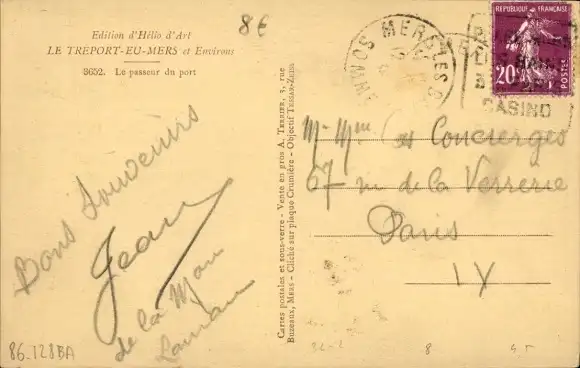 Edition d'Hélio d'Art
LE TREPORT-EU-MERS et Environs
8652. Le passeur du port
8€
MERS-LES-
SOMME
REPUBLIQUE FRANÇAISE
20c
POSTES
CASINO
Cartes postales et sous-verre - Vente en gros A. TERRIER, 3, rue
Buzeaux, MERS - Cliché sur plaque Crumière - Objectif TESSAR-ZEISS
Bons Souvenirs
Jean
de la Mon
Mr Mme les Concierges
67 r. de la Verrerie
Paris
IV
86-128BA
8